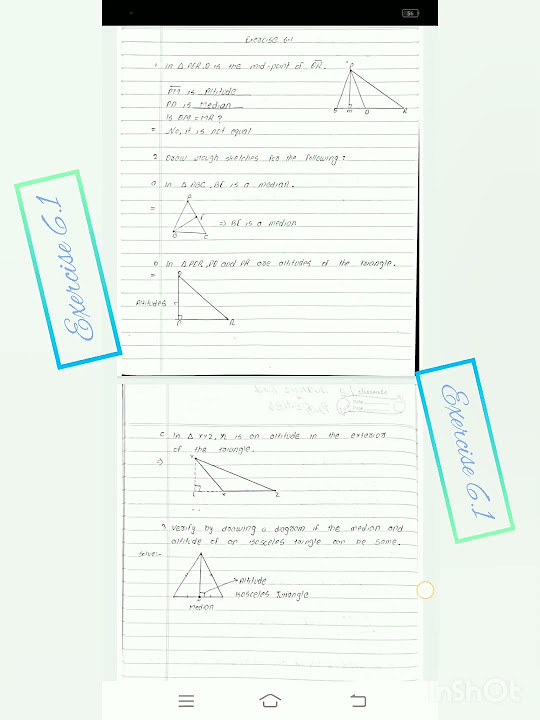 56
Exercise 6.1
1 In △ PQR, D is the mid-point of QR.
PM is Altitude
PD is Median
Is QM = MR ?
= No, it is not equal
P
Q M D R
2 Draw rough sketches for the following :
a In △ ABC, BE is a median.
=
A
E
B C
=> BE is a median
b In △ PQR, PQ and PR are altitudes of the triangle.
=
Q
Altitudes
P R
Exercise 6.1
classmate
Date
Page
c In △ XYZ, YL is an altitude in the exterior
of the triangle.
=>
Y
L X Z
3 Verify by drawing a diagram if the median and
altitude of an isosceles triangle can be same.
Solve:-
Altitude
Isosceles Triangle
Median
Exercise 6.1
InShOt